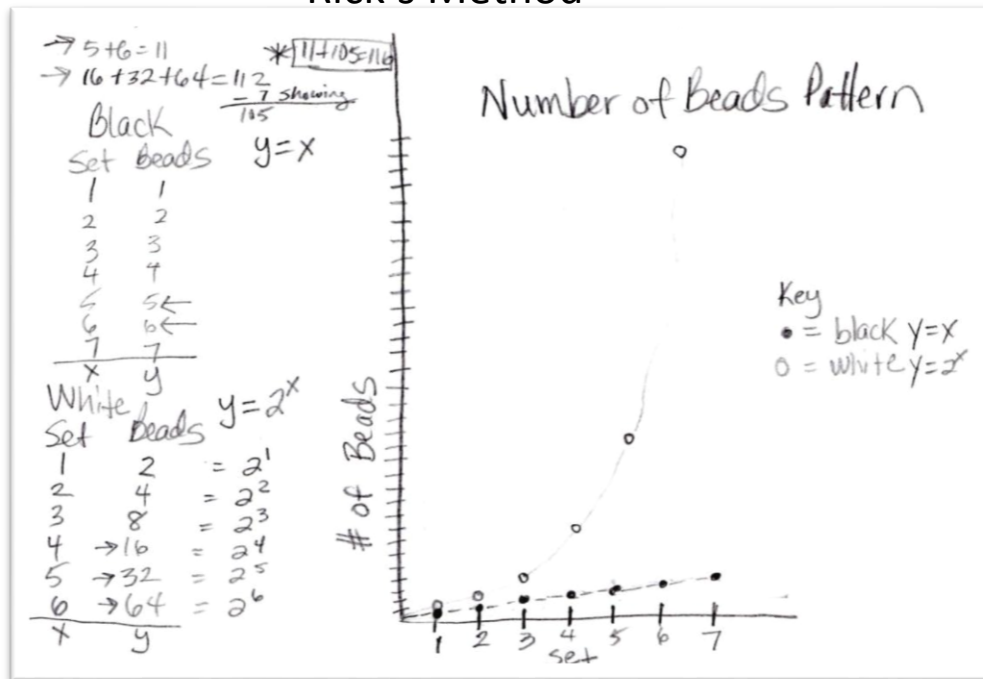 Rick's Method
→ 5+6=11
→ 16+32+64=112
- 7 showing
105
* 11+105=116
Black
Set Beads y=x
1 1
2 2
3 3
4 4
5 5←
6 6←
7 7
x y
White y=2^x
Set Beads
1 2 = 2^1
2 4 = 2^2
3 8 = 2^3
4 →16 = 2^4
5 →32 = 2^5
6 →64 = 2^6
x y
Number of Beads Pattern
# of Beads
1 2 3 4 5 6 7
set
Key
● = black y=x
○ = white y=2^x